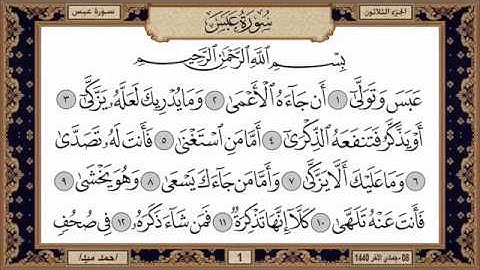 الجزء الثلاثون
سُورَةُ عَبَسَ
سورة عبس
بِسْمِ اللَّهِ الرَّحْمَٰنِ الرَّحِيمِ
عَبَسَ وَتَوَلَّىٰ ١ أَن جَاءَهُ الْأَعْمَىٰ ٢ وَمَا يُدْرِيكَ لَعَلَّهُ يَزَّكَّىٰ ٣
أَوْ يَذَّكَّرُ فَتَنفَعَهُ الذِّكْرَىٰ ٤ أَمَّا مَنِ اسْتَغْنَىٰ ٥ فَأَنتَ لَهُ تَصَدَّىٰ
٦ وَمَا عَلَيْكَ أَلَّا يَزَّكَّىٰ ٧ وَأَمَّا مَن جَاءَكَ يَسْعَىٰ ٨ وَهُوَ يَخْشَىٰ ٩
فَأَنتَ عَنْهُ تَلَهَّىٰ ١٠ كَلَّا إِنَّهَا تَذْكِرَةٌ ١١ فَمَن شَاءَ ذَكَرَهُ ١٢ فِي صُحُفٍ
08-جمادي الآخر 1440
1
/احمد عيد/